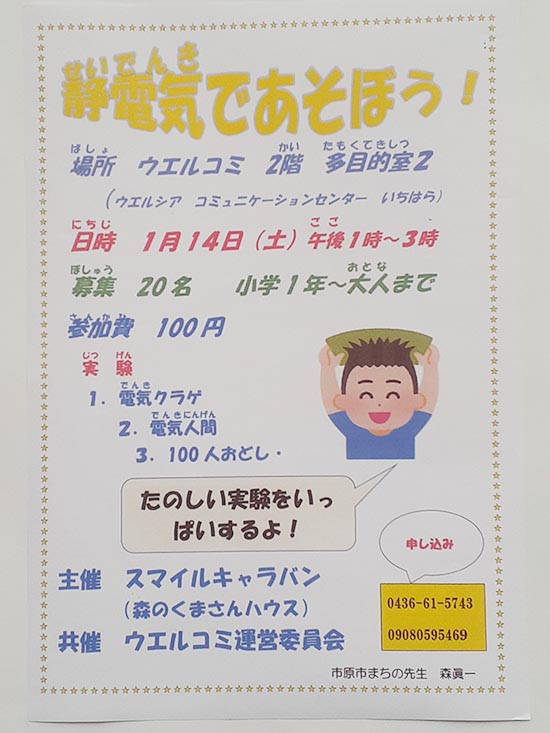 せいでんき
静電気であそぼう！
ばしょ　かい　たもくてきしつ
場所　ウエルコミ　2階　多目的室2
（ウエルシア　コミュニケーションセンター　いちはら）
にちじ　ごご
日時　1月14日（土）午後1時～3時
ぼしゅう　おとな
募集　20名　小学1年～大人まで
さんかひ
参加費　100円
じっ　けん
実　験
でんき
1．電気クラゲ
でんきにんげん
2．電気人間
3．100人おどし・
たのしい実験をいっ
ぱいするよ！
申し込み
0436-61-5743
09080595469
主催　スマイルキャラバン
（森のくまさんハウス）
共催　ウエルコミ運営委員会
市原市まちの先生　森眞一